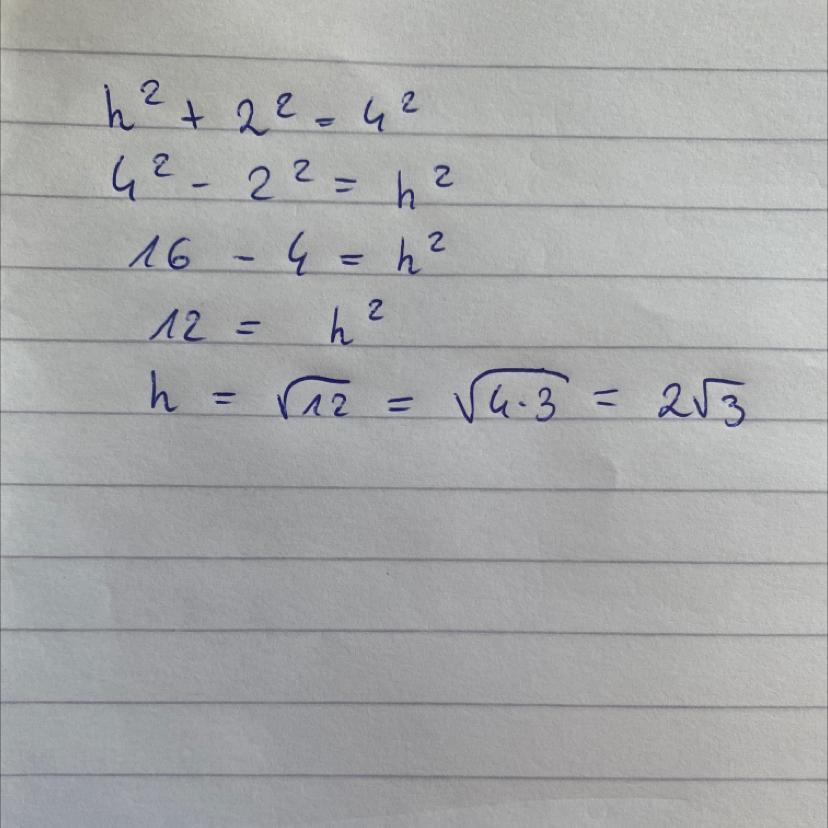 h² + 2² = 4²
4² - 2² = h²
16 - 4 = h²
12 = h²
h = √12 = √4·3 = 2√3